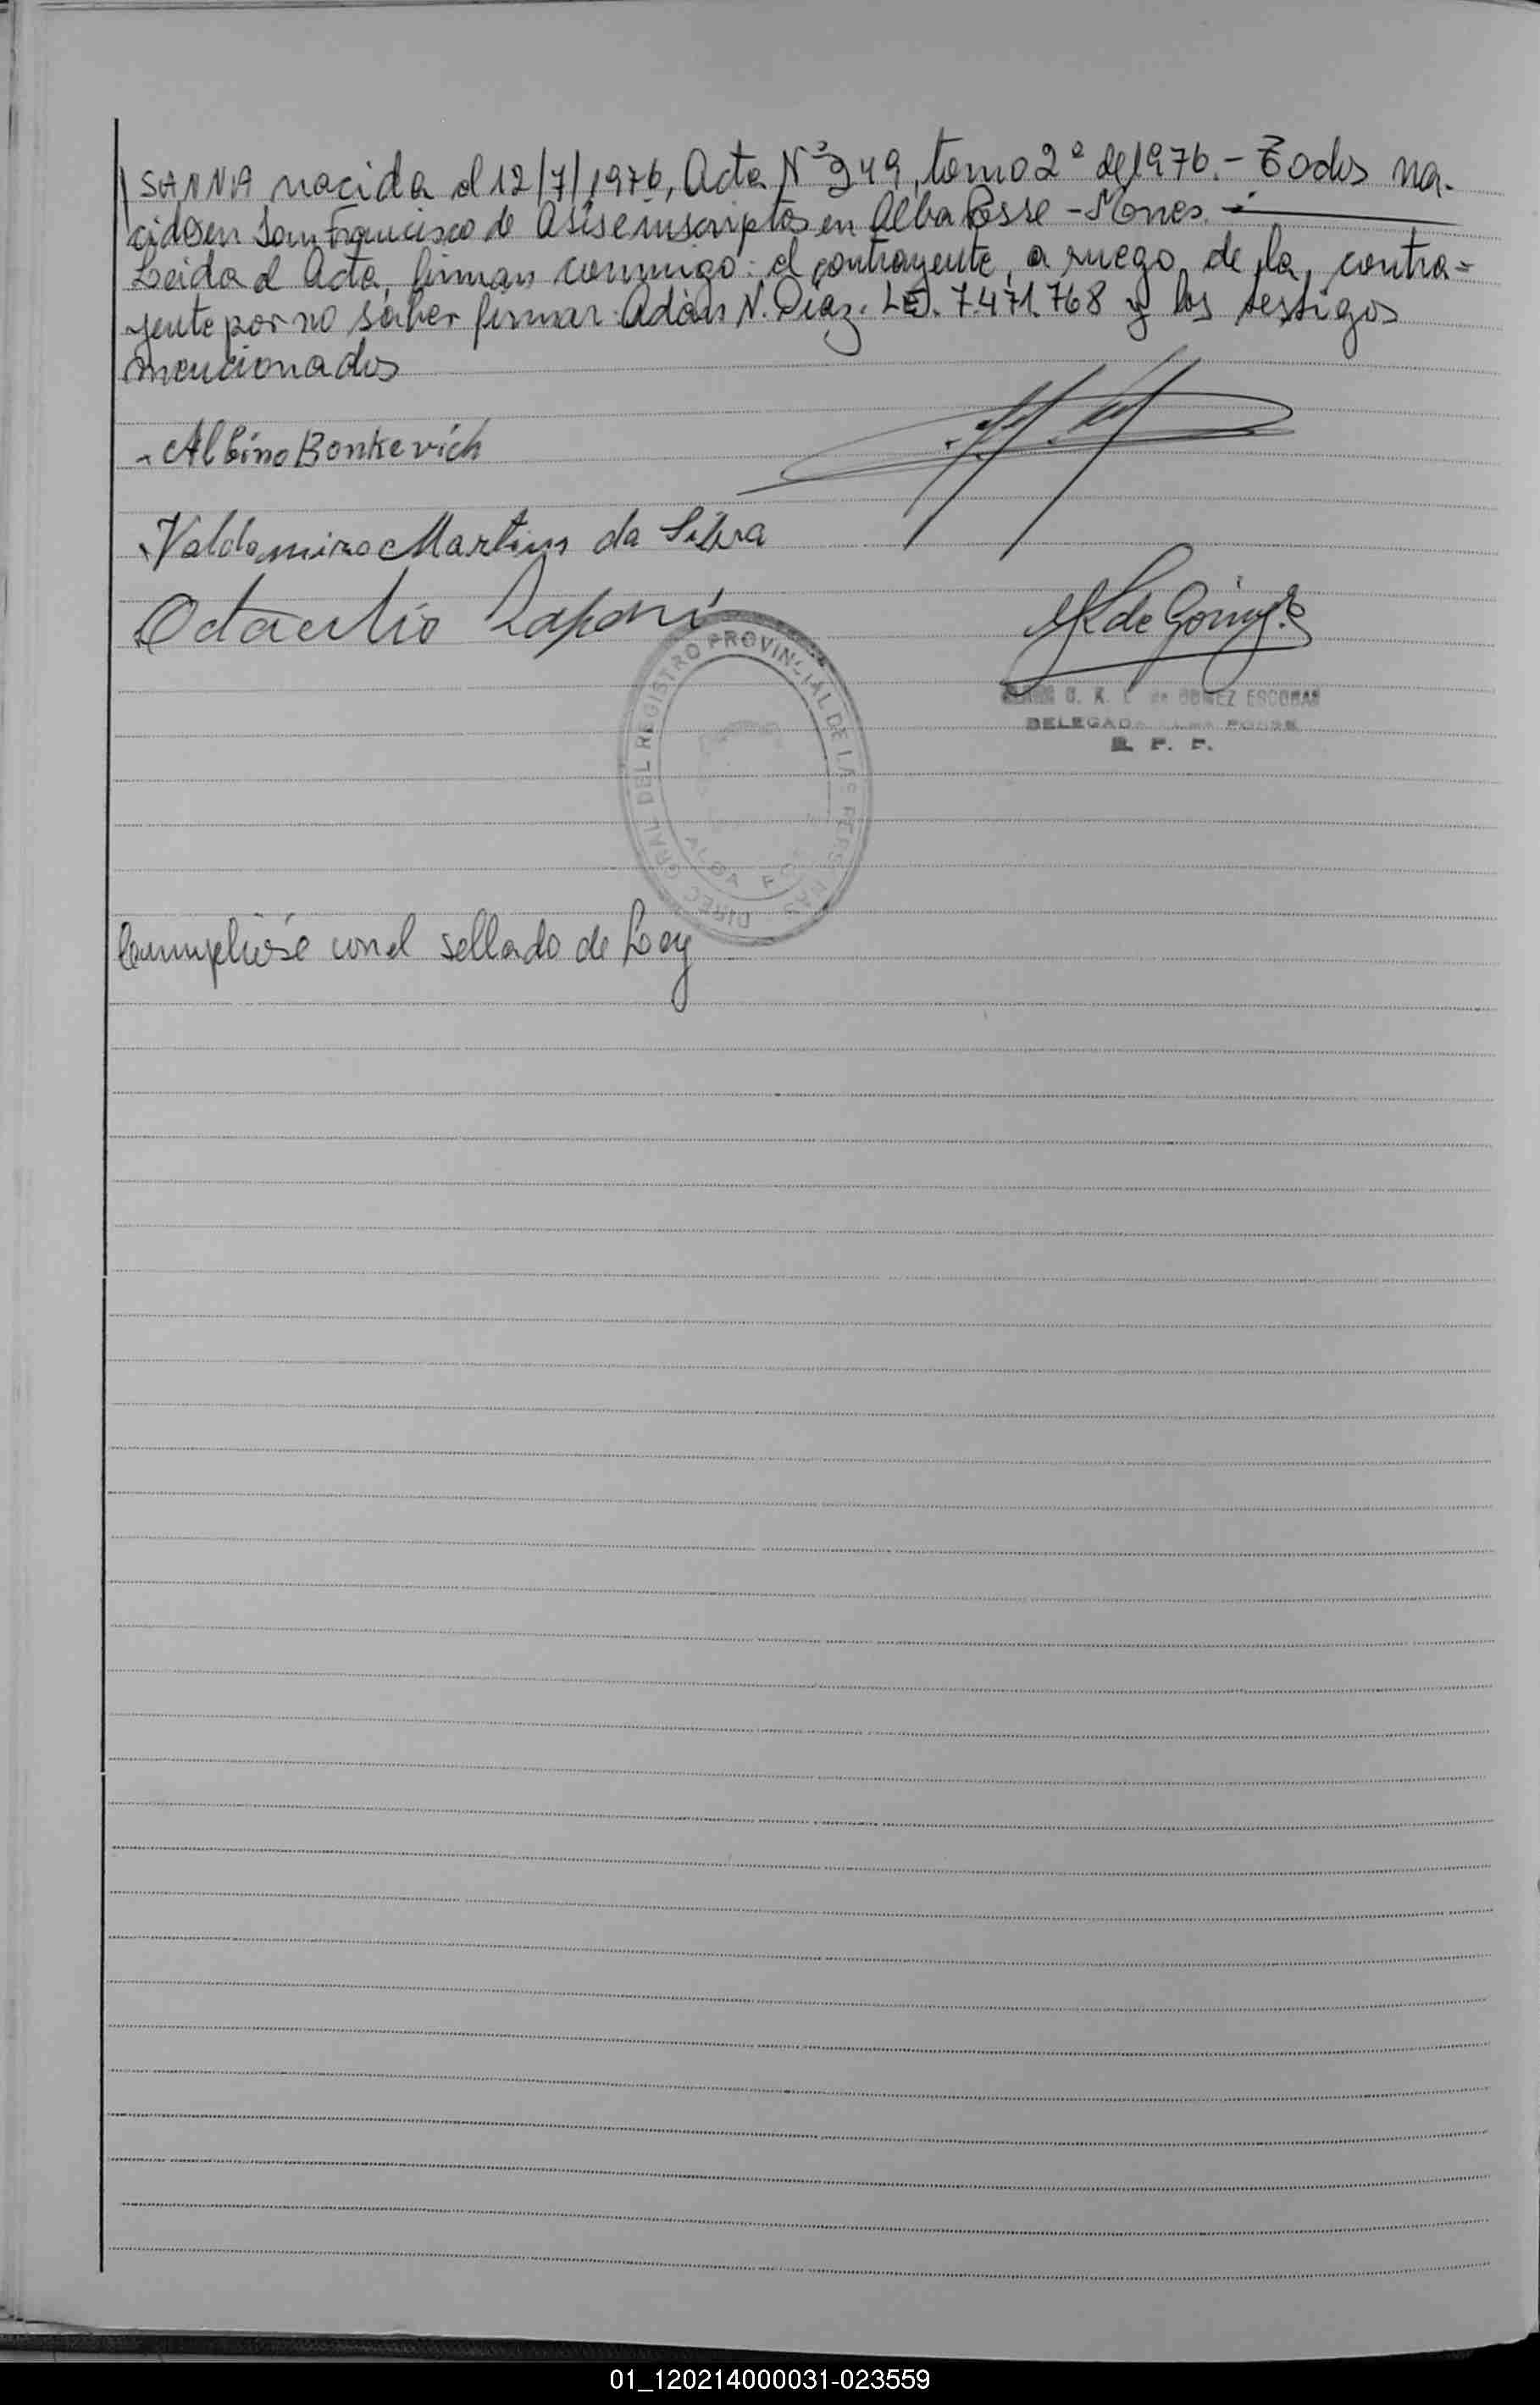 SANNA nacida el 12/7/1976, Acta Nº 249, tomo 2º del 1976.- Todos na-
cidos en San Francisco de Asis e inscriptos en Alba Posse - Mnes. -
Leida el Acta, firman conmigo: el contrayente, a ruego de la, contra=
yente por no saber firmar: Adán N. Díaz. L.E. 7.471.768 y los testigos
mencionados
Albino Bonkevich
Valdomiro Martins da Silva
Octavio
de GOMEZ ESCOBAR
DELEGADA ALBA POSSE
R. P. P.
DIREC. GRAL. DEL REGISTRO PROVINCIAL DE LAS PERSONAS
ALBA POSSE
Cumpliose con el sellado de Ley
01_120214000031-023559